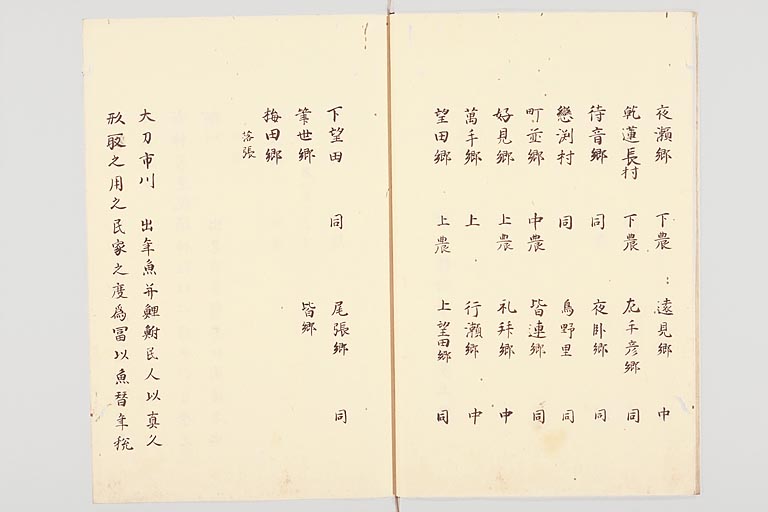 夜瀬郷 下農 遠見郷 中
乾蓮長村 下農 尨手彦郷 同
待音郷 同 夜卧郷 同
戀渕村 同 鳥野里 同
町並郷 中農 皆連郷 同
好見郷 上農 礼拜郷 中
萬手郷 上 行瀬郷 中
望田郷 上農 上望田郷 同
下望田 同 尾張郷 同
筆世郷 皆郷
梅田郷
落張
大刀市川 出年魚并鯉鮒民人以真久
形取之用之民家之度為冨以魚替年税